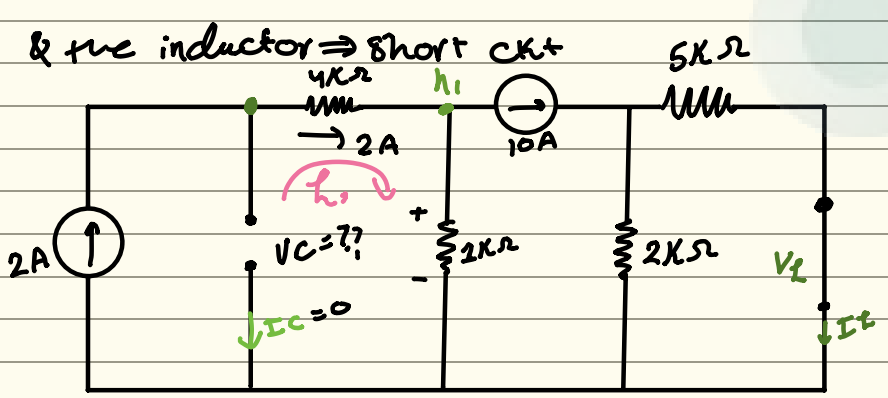 & the inductor ⇒ short ckt
4KΩ
n1
5KΩ
2A
10A
L1
+
2A
VC=??
1KΩ
2KΩ
VL
-
Ic=0
IL